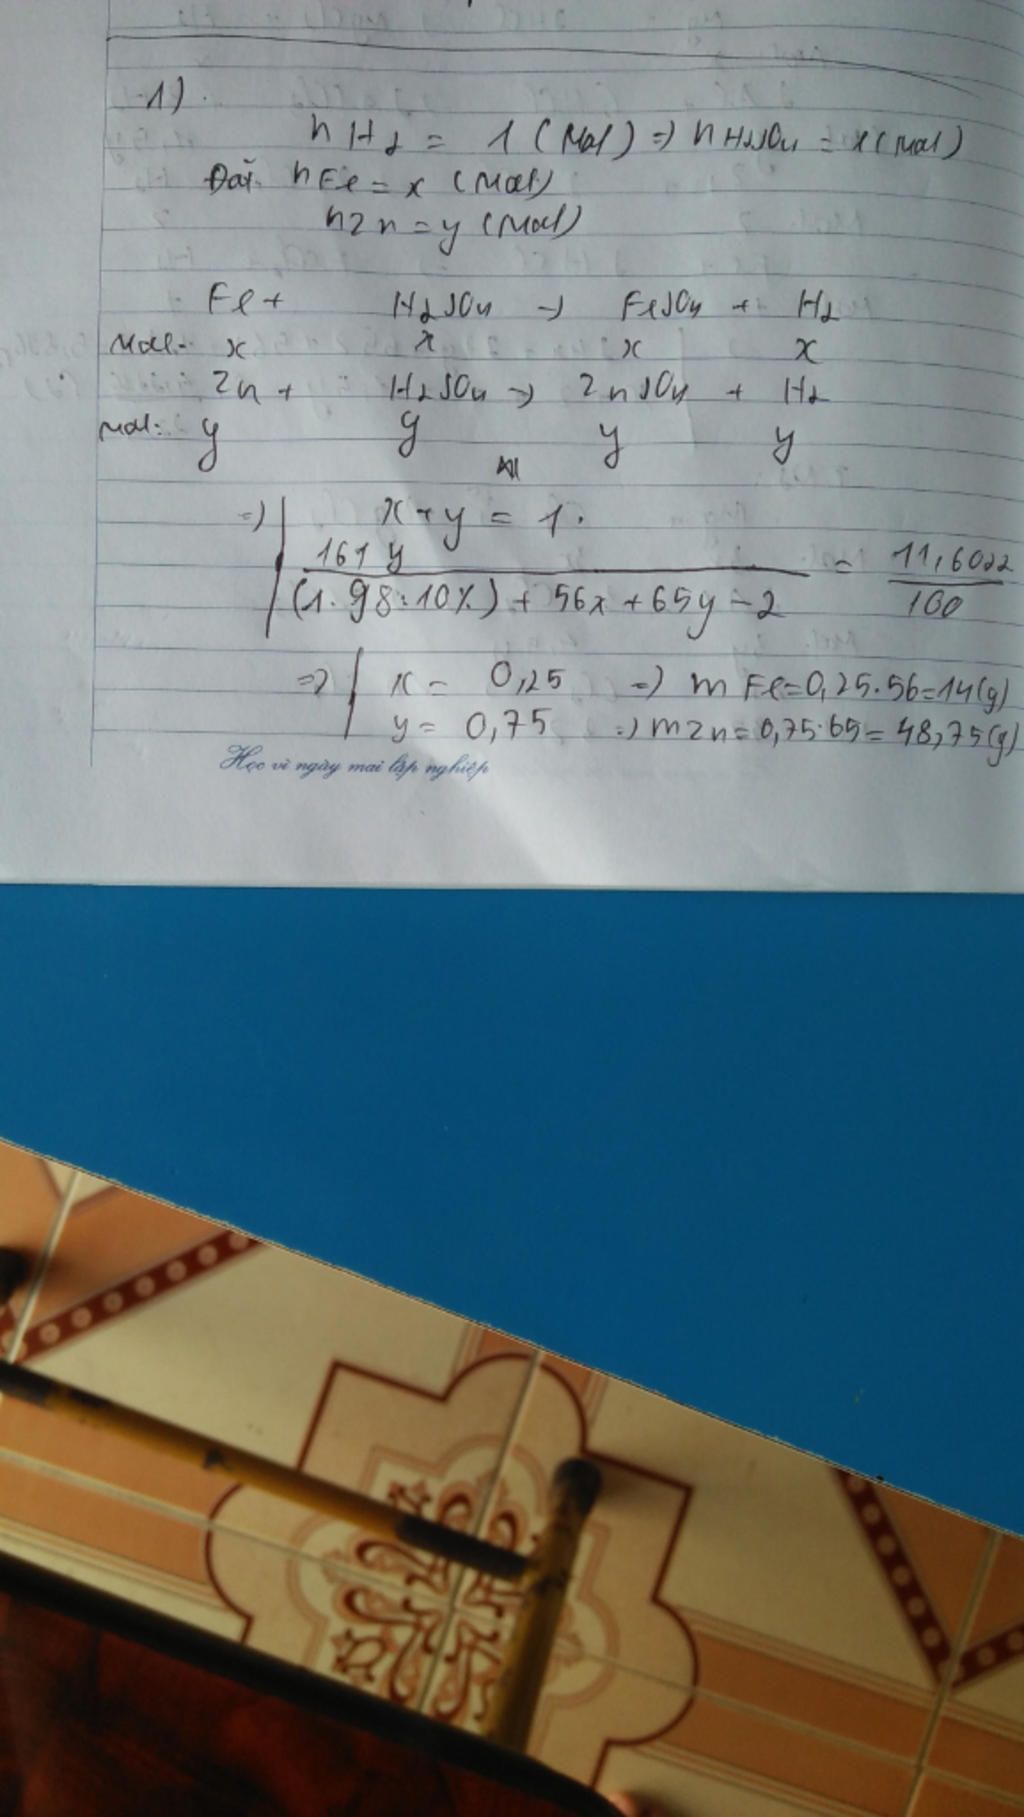 1)
nH2 = 1 (mol) => nH2SO4 = 1 (mol)
Đặt nFe = x (mol)
nZn = y (mol)
Fe + H2SO4 -> FeSO4 + H2
mol: x x x x
Zn + H2SO4 -> ZnSO4 + H2
mol: y y y y
=> | x + y = 1.
161y / ((1.98:10%) + 56x + 65y - 2) = 11,6022 / 100
=> | x = 0,25 => mFe = 0,25.56 = 14(g)
y = 0,75 => mZn = 0,75.65 = 48,75(g)
Học vì ngày mai lập nghiệp